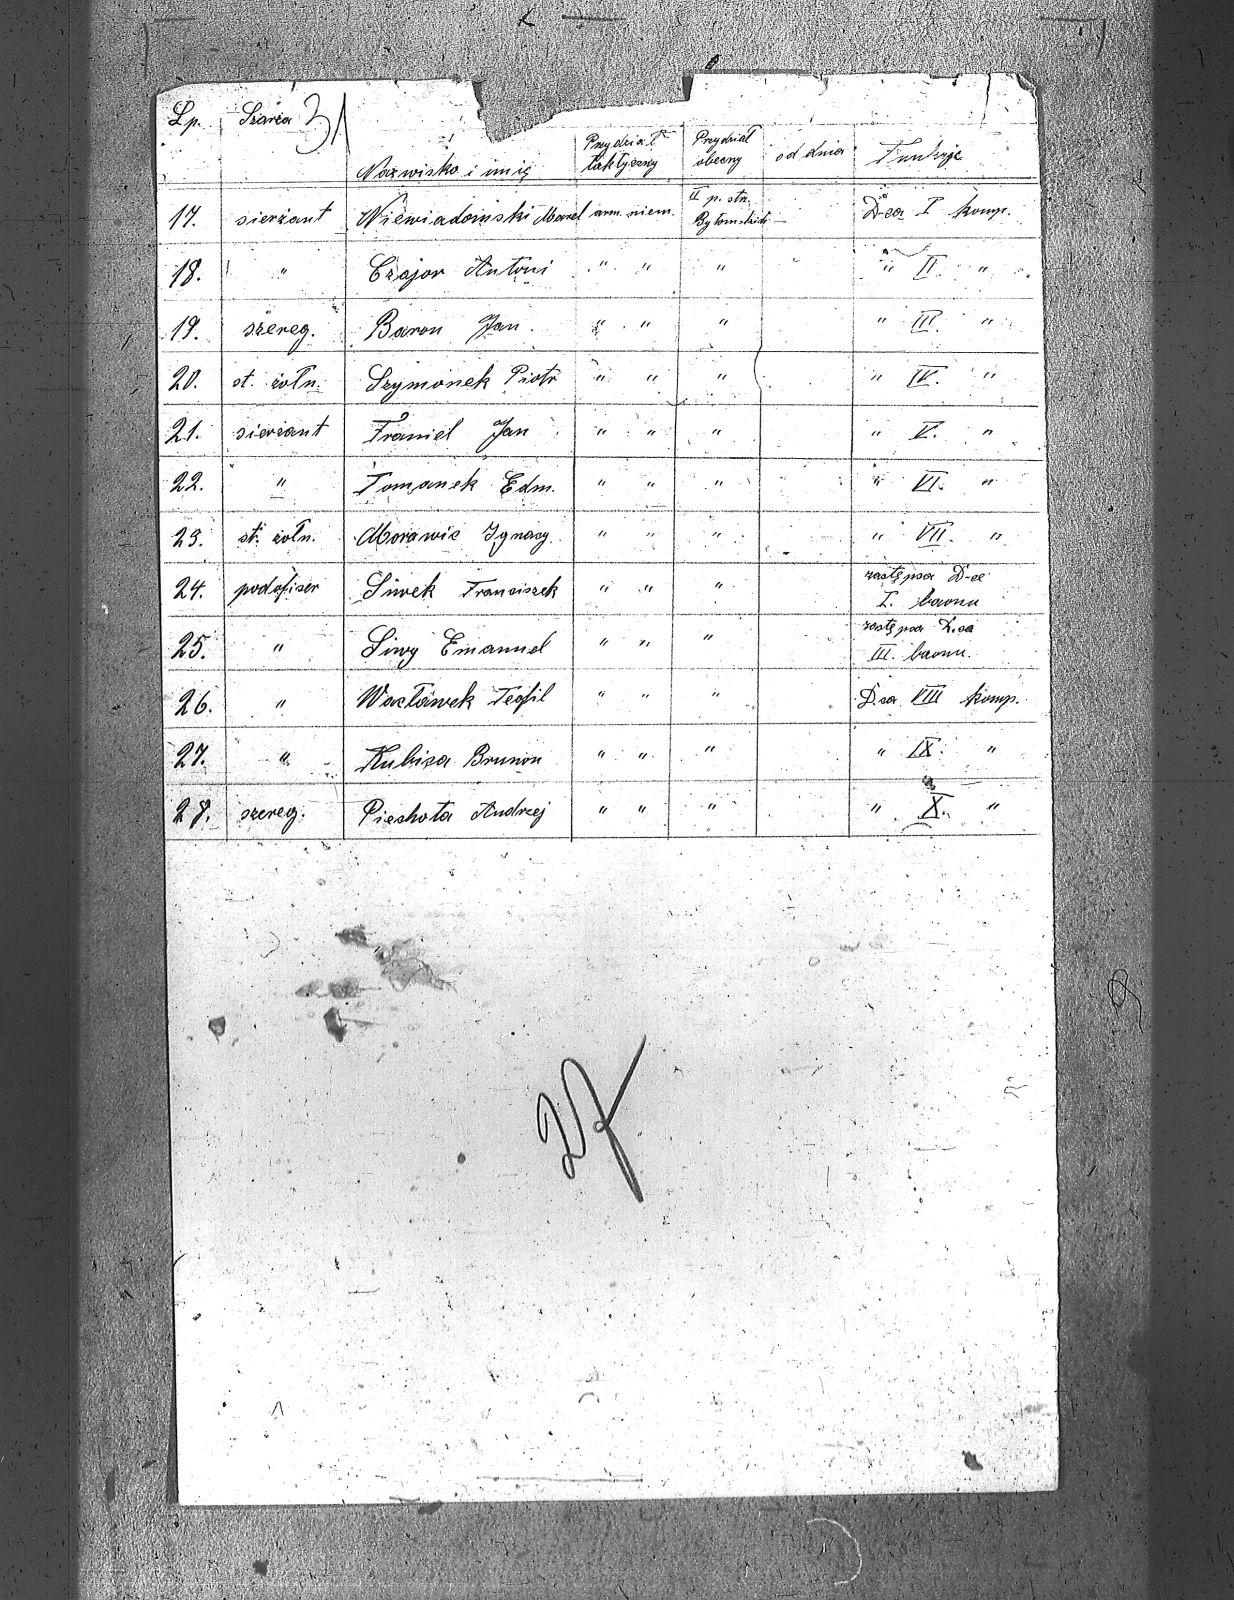 Lp. Szarża 31
Nazwisko i imię Przydział taktyczny Przydział obecny od dnia Funkcje
17. sierżant Niewiadomski arm. niem. II p. str. Bytomskich — D-ca I komp.
18. " Czajor Antoni " " " " II. "
19. szereg. Baron Jan. " " " " III. "
20. st. żołn. Szymonek Piotr " " " " IV. "
21. sierżant Franiel Jan " " " " V. "
22. " Tomanek Edm. " " " " VI. "
23. st. żołn. Morawie Ignacy. " " " " VII. "
24. podofiser Siwek Franciszek " " " zastępca D-ce I. baonu
25. " Siwy Emanuel " " " zastępca D.ca III. baonu.
26. " Wacławek Teofil " " " D.ca VIII komp.
27. " Kubica Brunon " " " " IX. "
28. szereg. Piechota Andrzej " " " " X. "